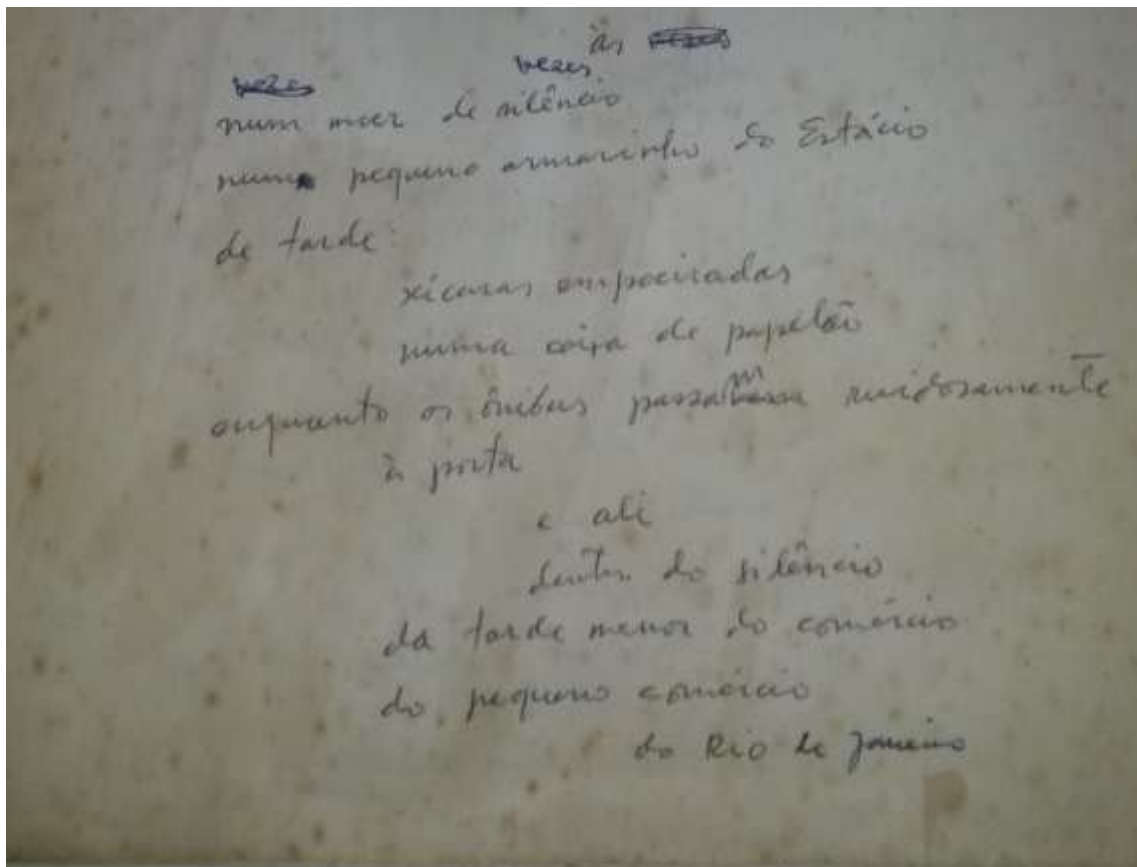 às
vezes
num mer de silêncio
num pequeno armarinho do Estácio
de tarde:
xícaras empoeiradas
numa caixa de papelão
enquanto os ônibus passam ruidosamente
à porta
e ali
dentro do silêncio
da tarde menor do comércio
do pequeno comércio
do Rio de Janeiro